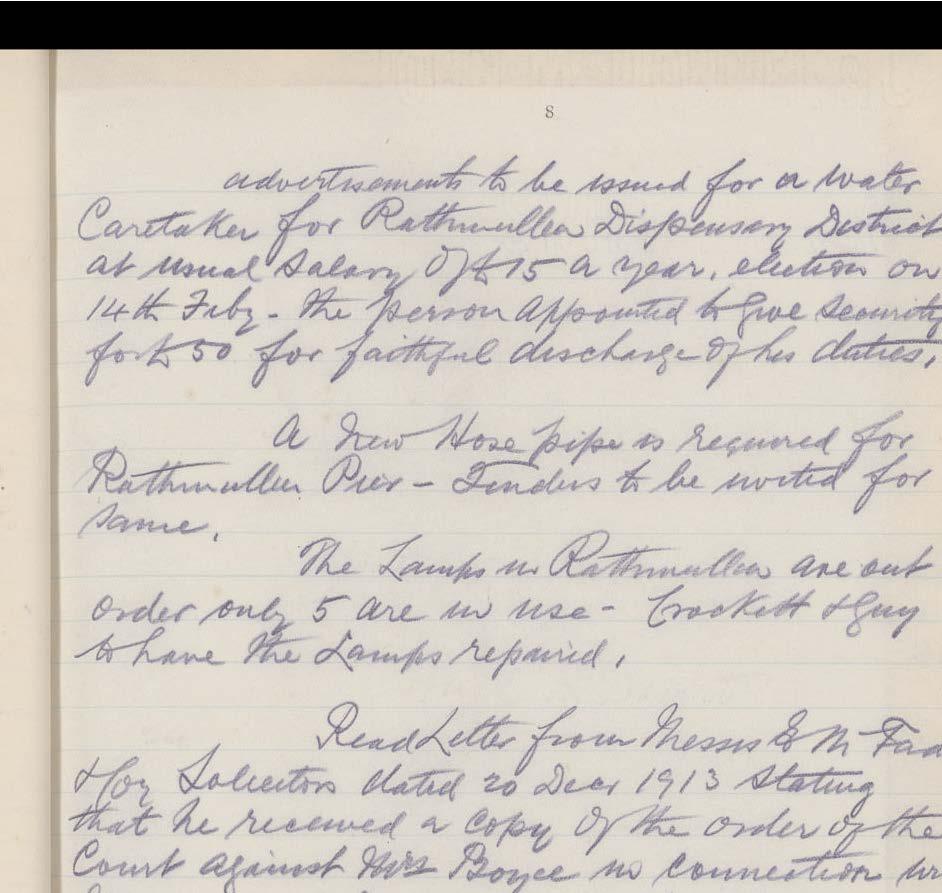 8
advertisements to be issued for a Water
Caretaker for Rathmullen Dispensary District
at usual Salary of £15 a year, election on
14th Feby - the person appointed to give Security
for £50 for faithful discharge of his duties,
A New Hose pipe is required for
Rathmullen Pier - Tenders to be invited for
same.
The Lamps in Rathmullen are out
order only 5 are in use - Crockett & Guy
to have the Lamps repaired.
Read Letter from Messrs E McFad
& Coy Solicitors dated 20 Decr 1913 stating
that he received a copy of the order of the
Court against Mrs Boyce in connection